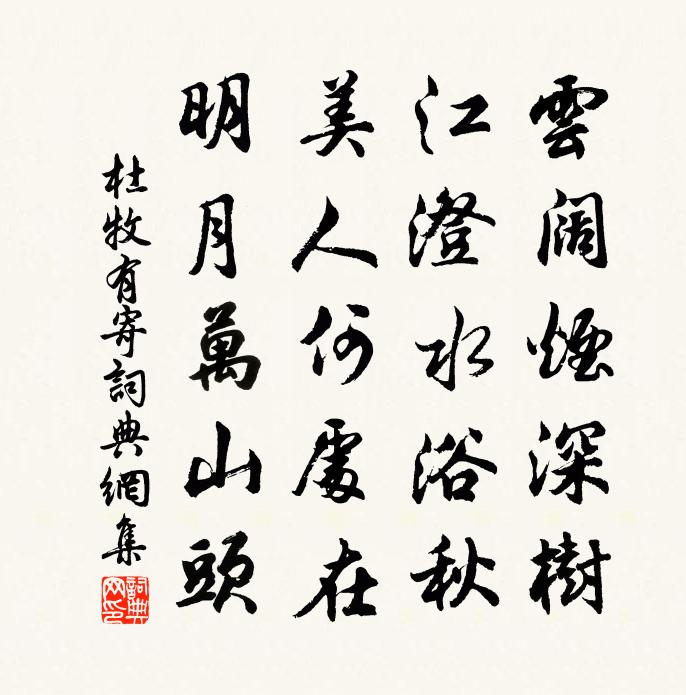 雲闊煙深樹
江澄水浴秋
美人何處在
明月萬山頭
杜牧有寄詞典網集
詞典网印